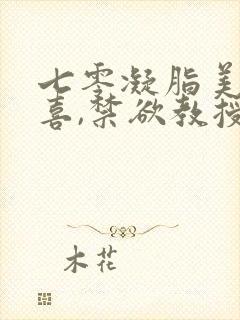 七零凝脂美
喜,禁欲教授
木花